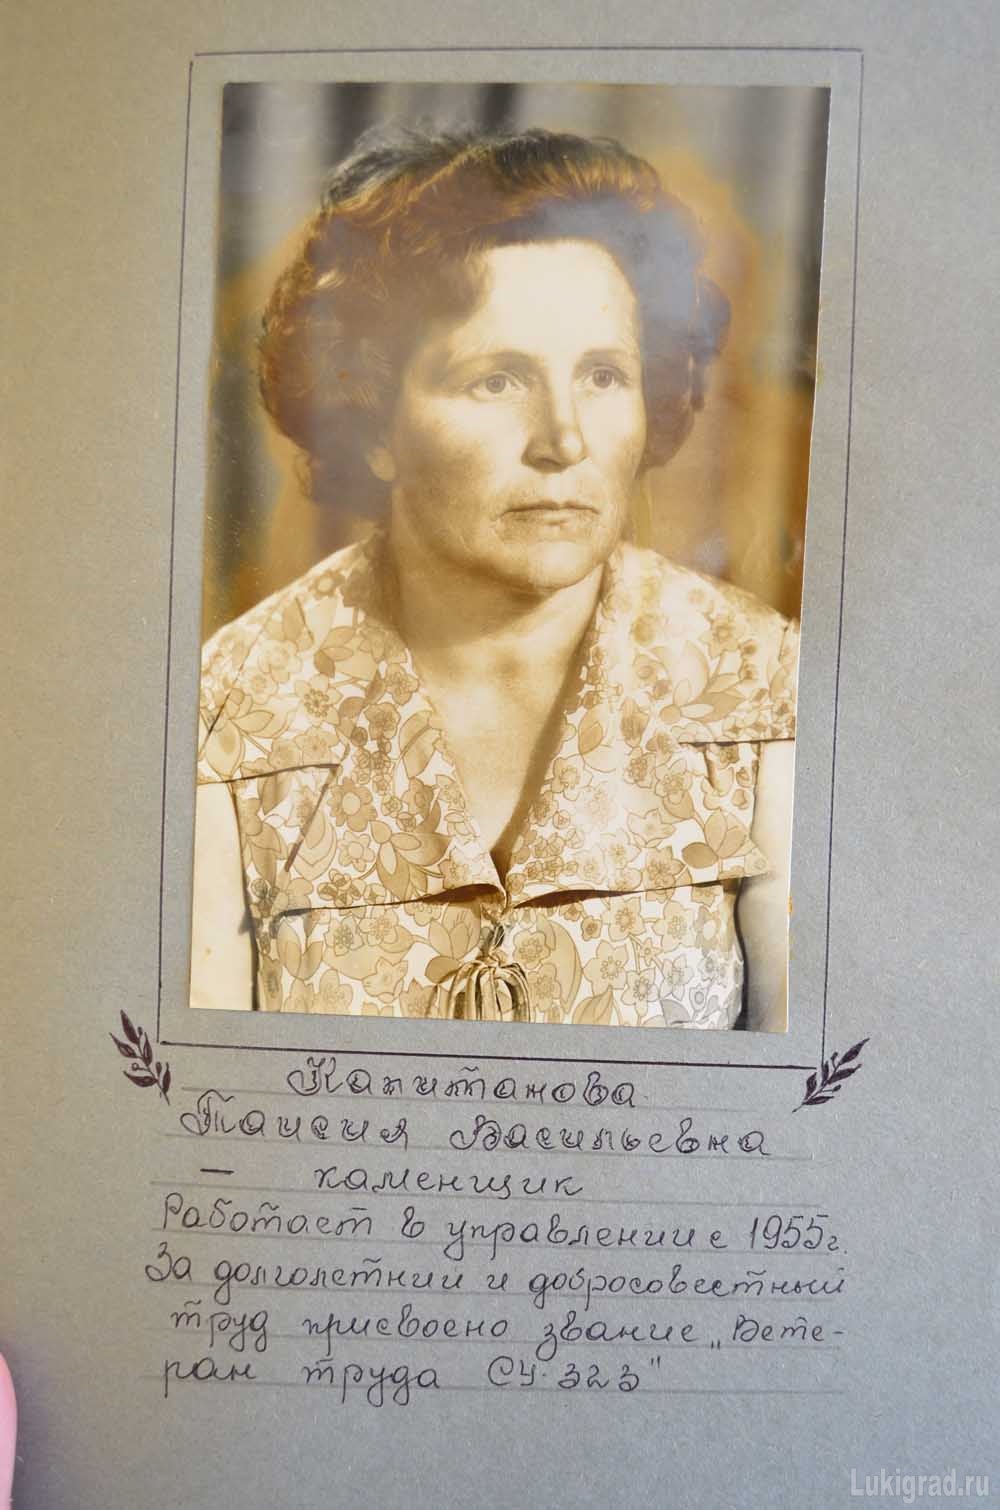 Капитанова
Таисия Васильевна
— каменщик
Работает в управлении с 1955г.
За долголетний и добросовестный
труд присвоено звание „Вете-
ран труда СУ-323"
Lukigrad.ru